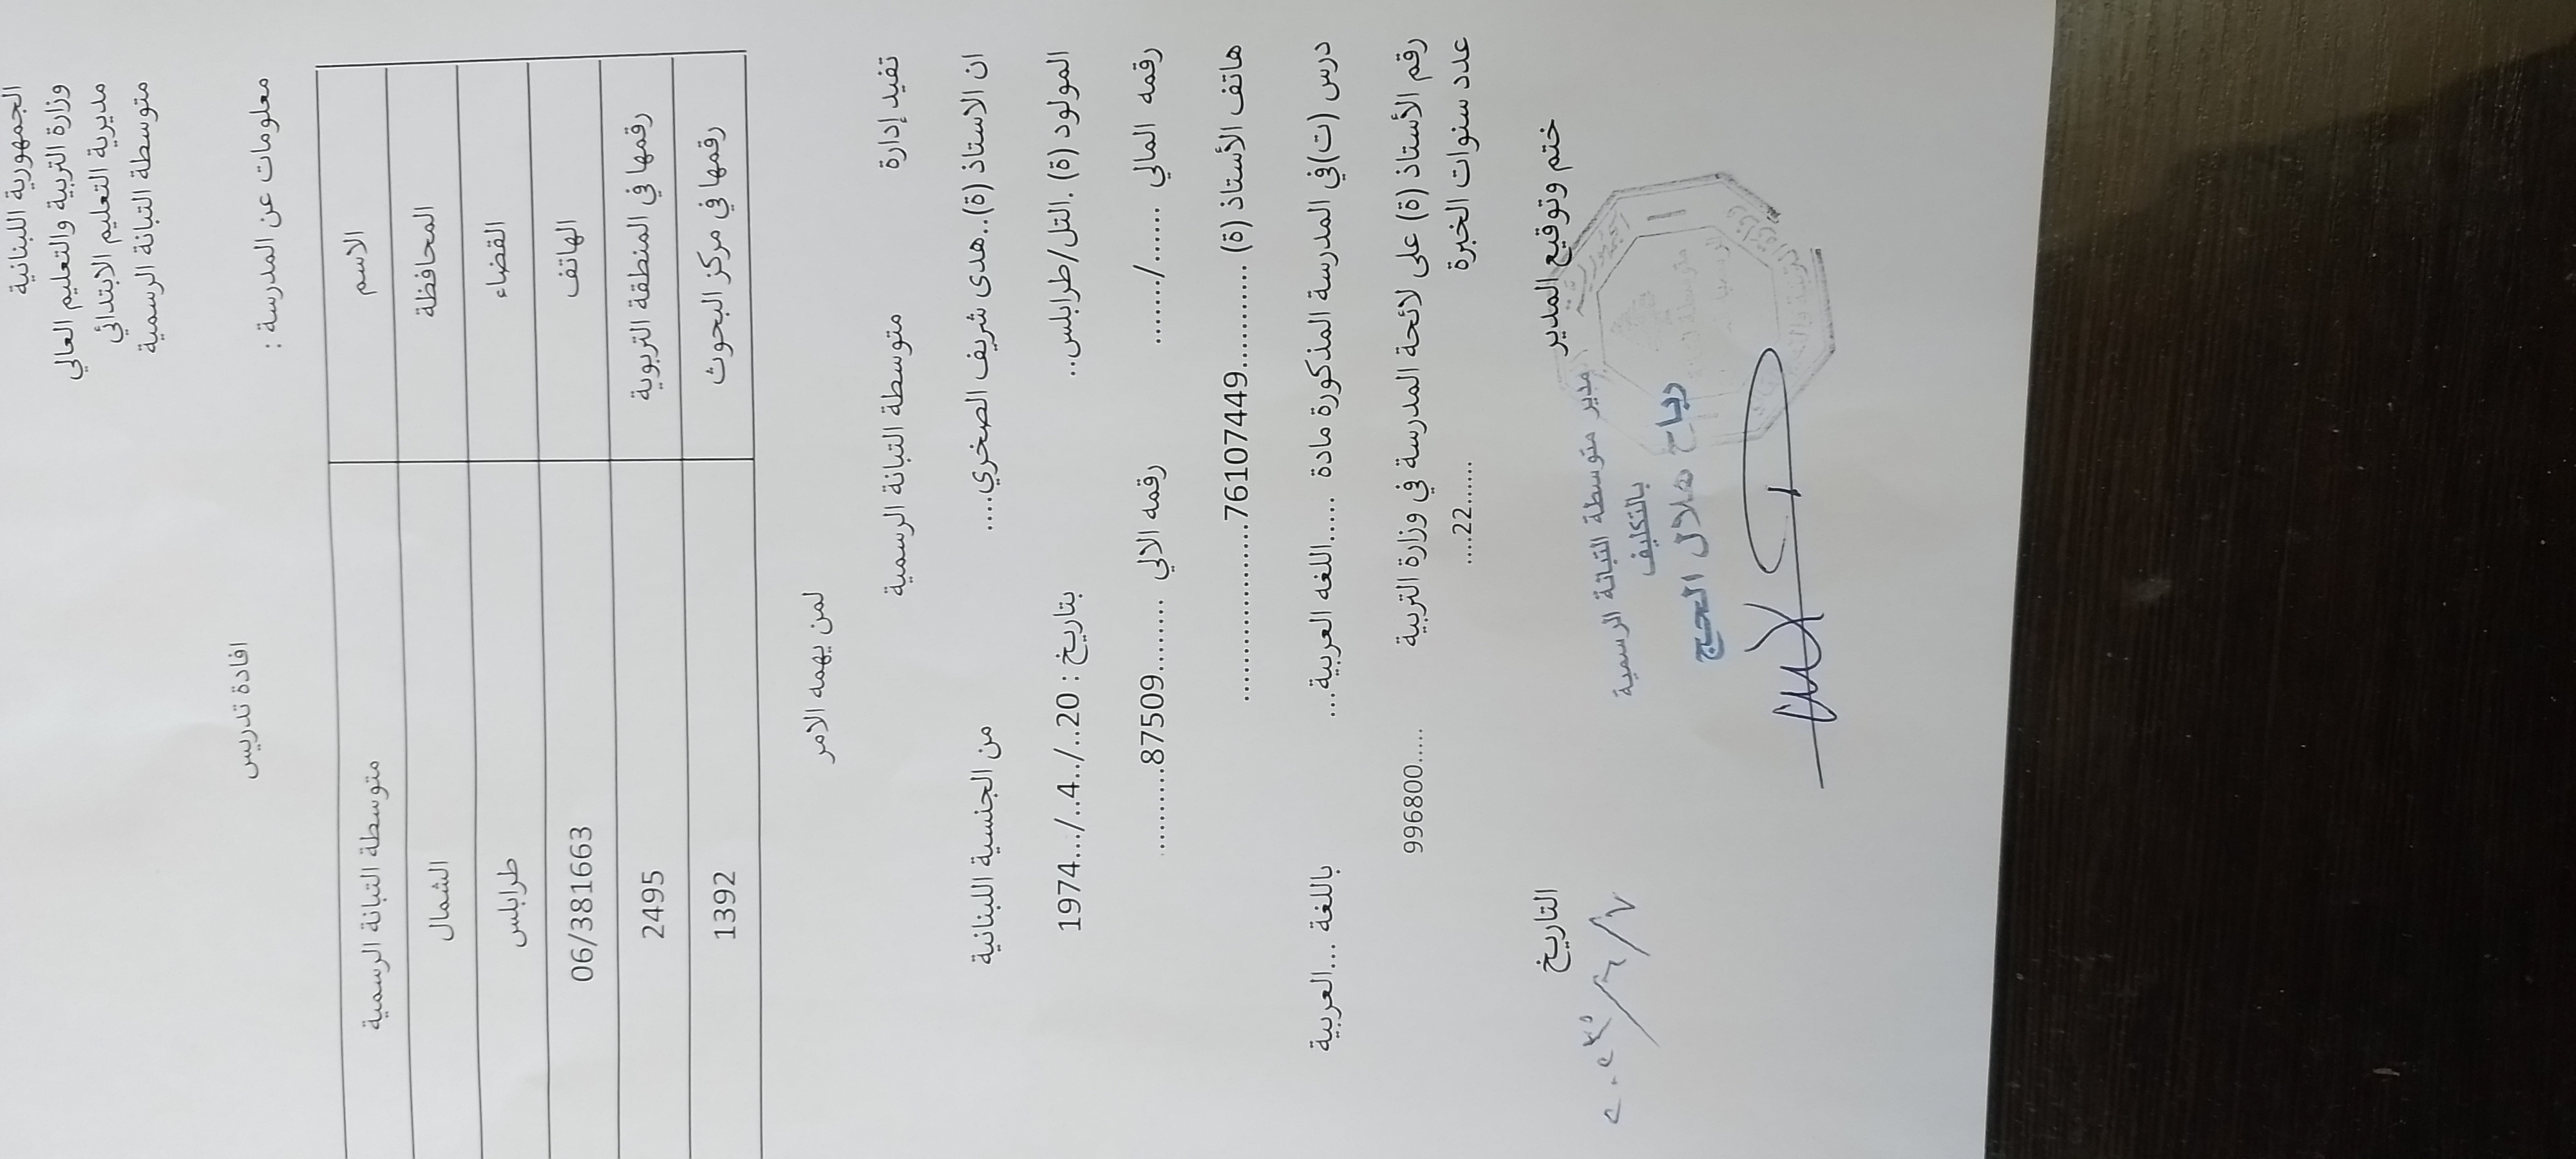 الجمهورية اللبنانية
وزارة التربية والتعليم العالي
مديرية التعليم الابتدائي
متوسطة التبانة الرسمية
افادة تدريس
معلومات عن المدرسة :
الاسم متوسطة التبانة الرسمية
المحافظة الشمال
القضاء طرابلس
الهاتف 06/381663
رقمها في المنطقة التربوية 2495
رقمها في مركز البحوث 1392
لمن يهمه الامر
تفيد إدارة متوسطة التبانة الرسمية
ان الاستاذ (ة)..هدى شريف الصخري.... من الجنسية اللبنانية
المولود (ة) .التل/طرابلس... بتاريخ : 20../..4../...1974
رقمه المالي ....../....... رقمه الالي .........87509...........
هاتف الأستاذ (ة) ............76107449....................
درس (ت)في المدرسة المذكورة مادة ......اللغه العربية... باللغة ....العربية
رقم الأستاذ (ة) على لائحة المدرسة في وزارة التربية .....9968000
عدد سنوات الخبرة ......22....
ختم وتوقيع المدير التاريخ
مدير متوسطة التبانة الرسمية
بالتكليف
رباح هلال الحج